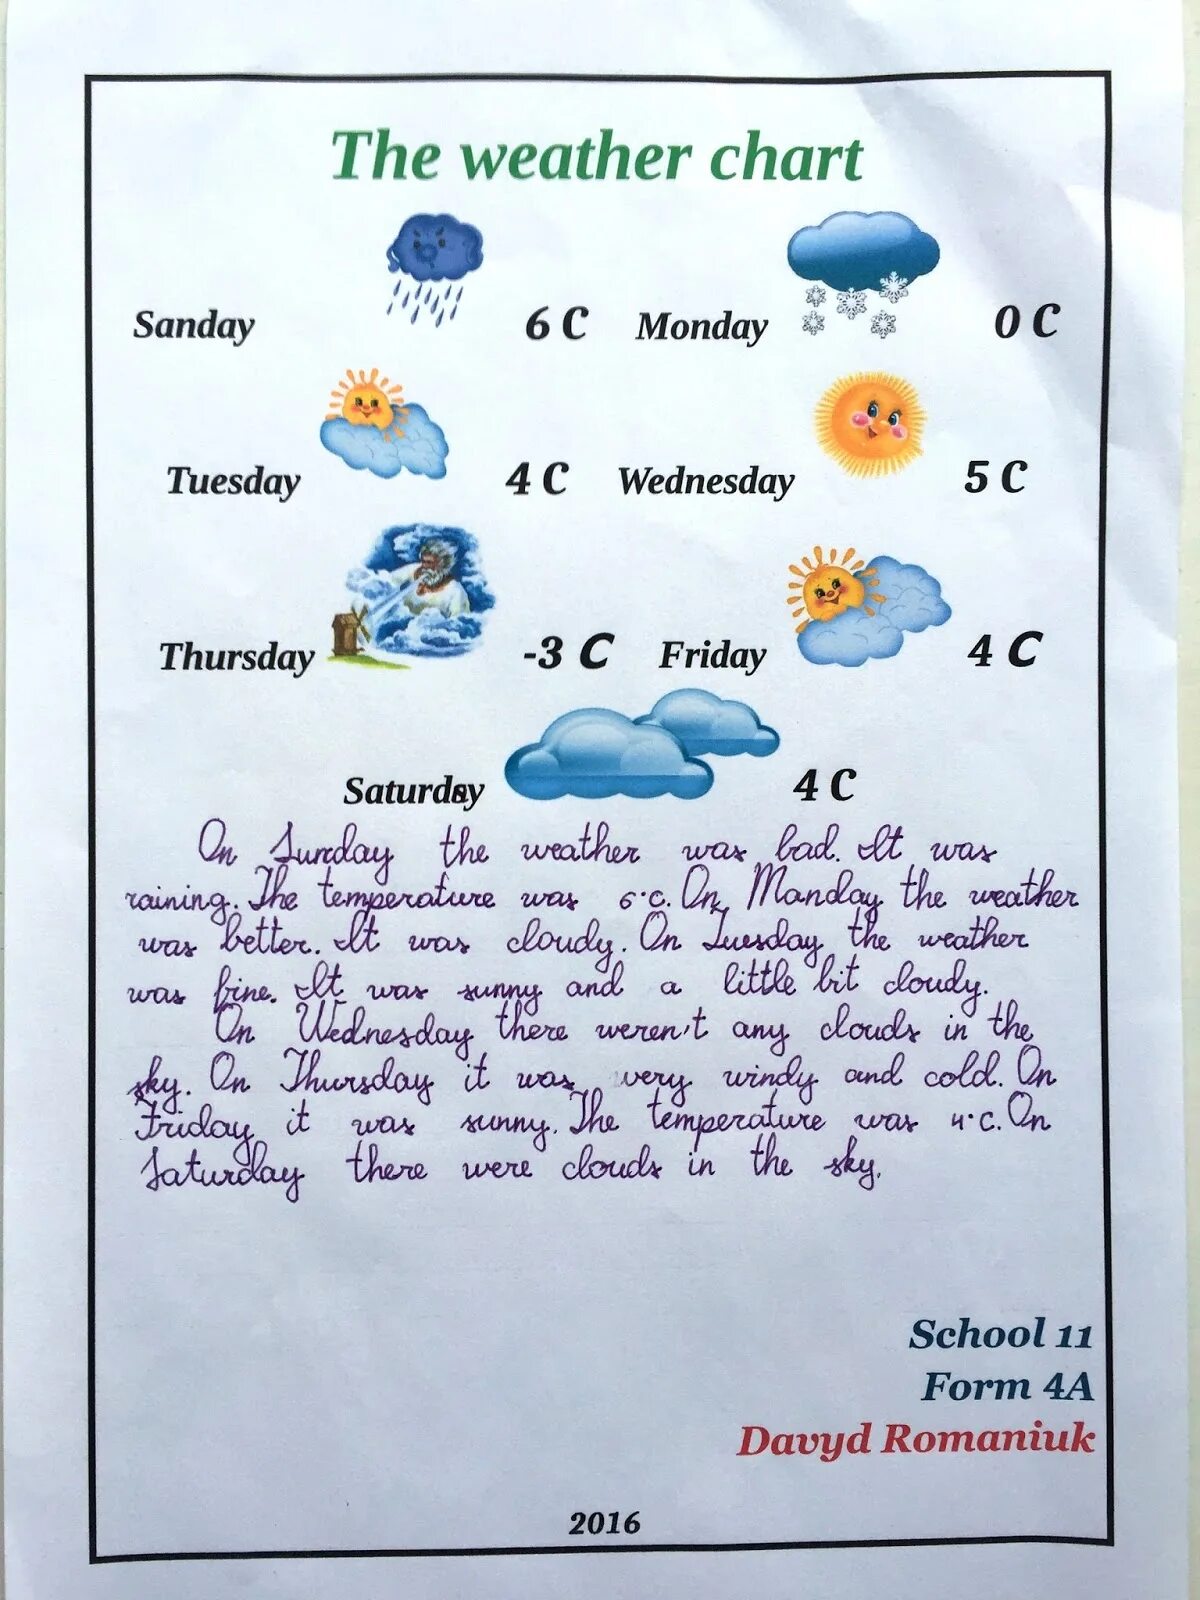 The weather chart
Sanday 6 C Monday 0 C
Tuesday 4 C Wednesday 5 C
Thursday -3 C Friday 4 C
Saturday 4 C
On Sunday the weather was bad. It was
raining. The temperature was 6°C. On Manday the weather
was better. It was cloudy. On Tuesday the weather
was fine. It was sunny and a little bit cloudy.
On Wednesday there weren't any clouds in the
sky. On Thursday it was very windy and cold. On
Friday it was sunny. The temperature was 4°C. On
Saturday there were clouds in the sky.
School 11
Form 4A
Davyd Romaniuk
2016